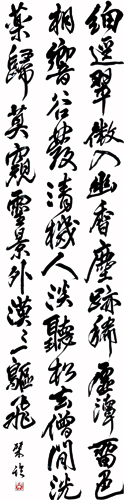 細逕翠微入幽香塵跡稀虛潭留色
相響谷發清機人淡聽松去僧閒洗
藥歸莫窺雲景外漠々一驅飛